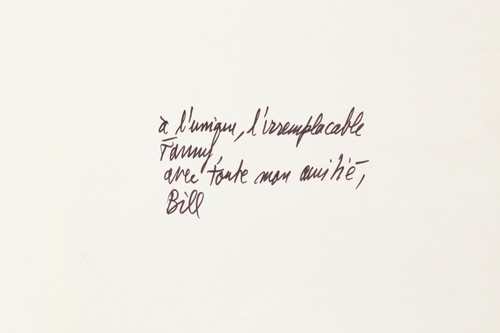 à l'unique, l'irremplacable
Fanny,
avec toute mon amitié,
Bill